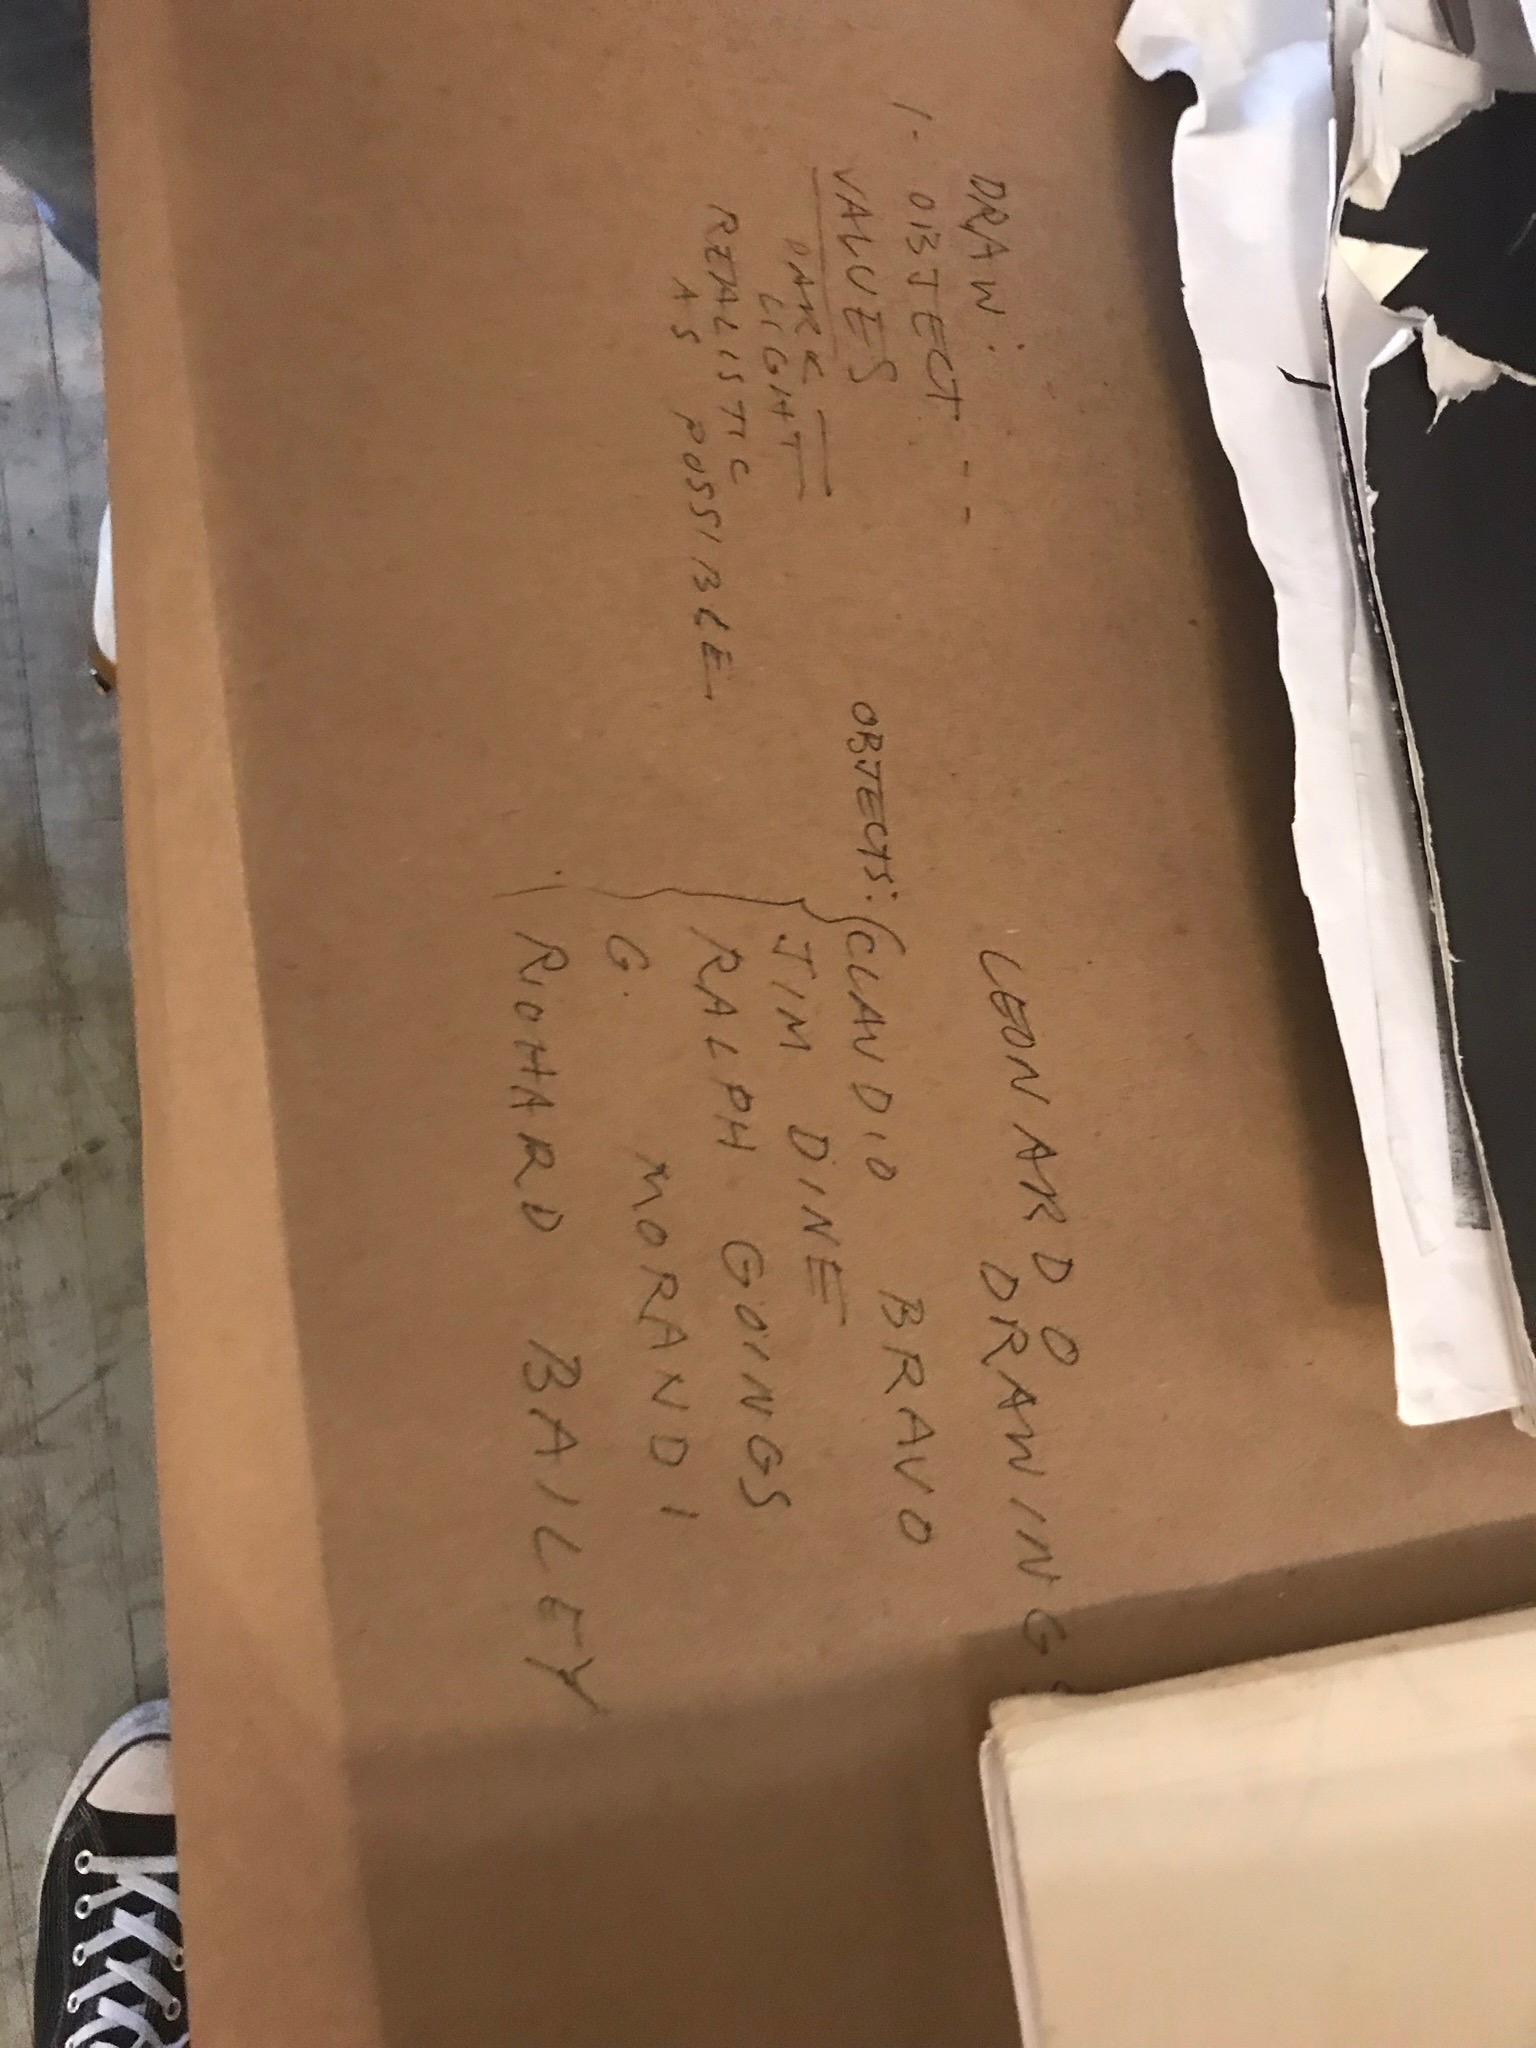 DRAW:
1. OBJECT --
VALUES
DARK -
LIGHT
REALISTIC
AS POSSIBLE
LEONARDO
DRAWINGS
OBJECTS: CLAUDIO BRAVO
JIM DINE
RALPH GOINGS
G. MORANDI
RICHARD BAILEY